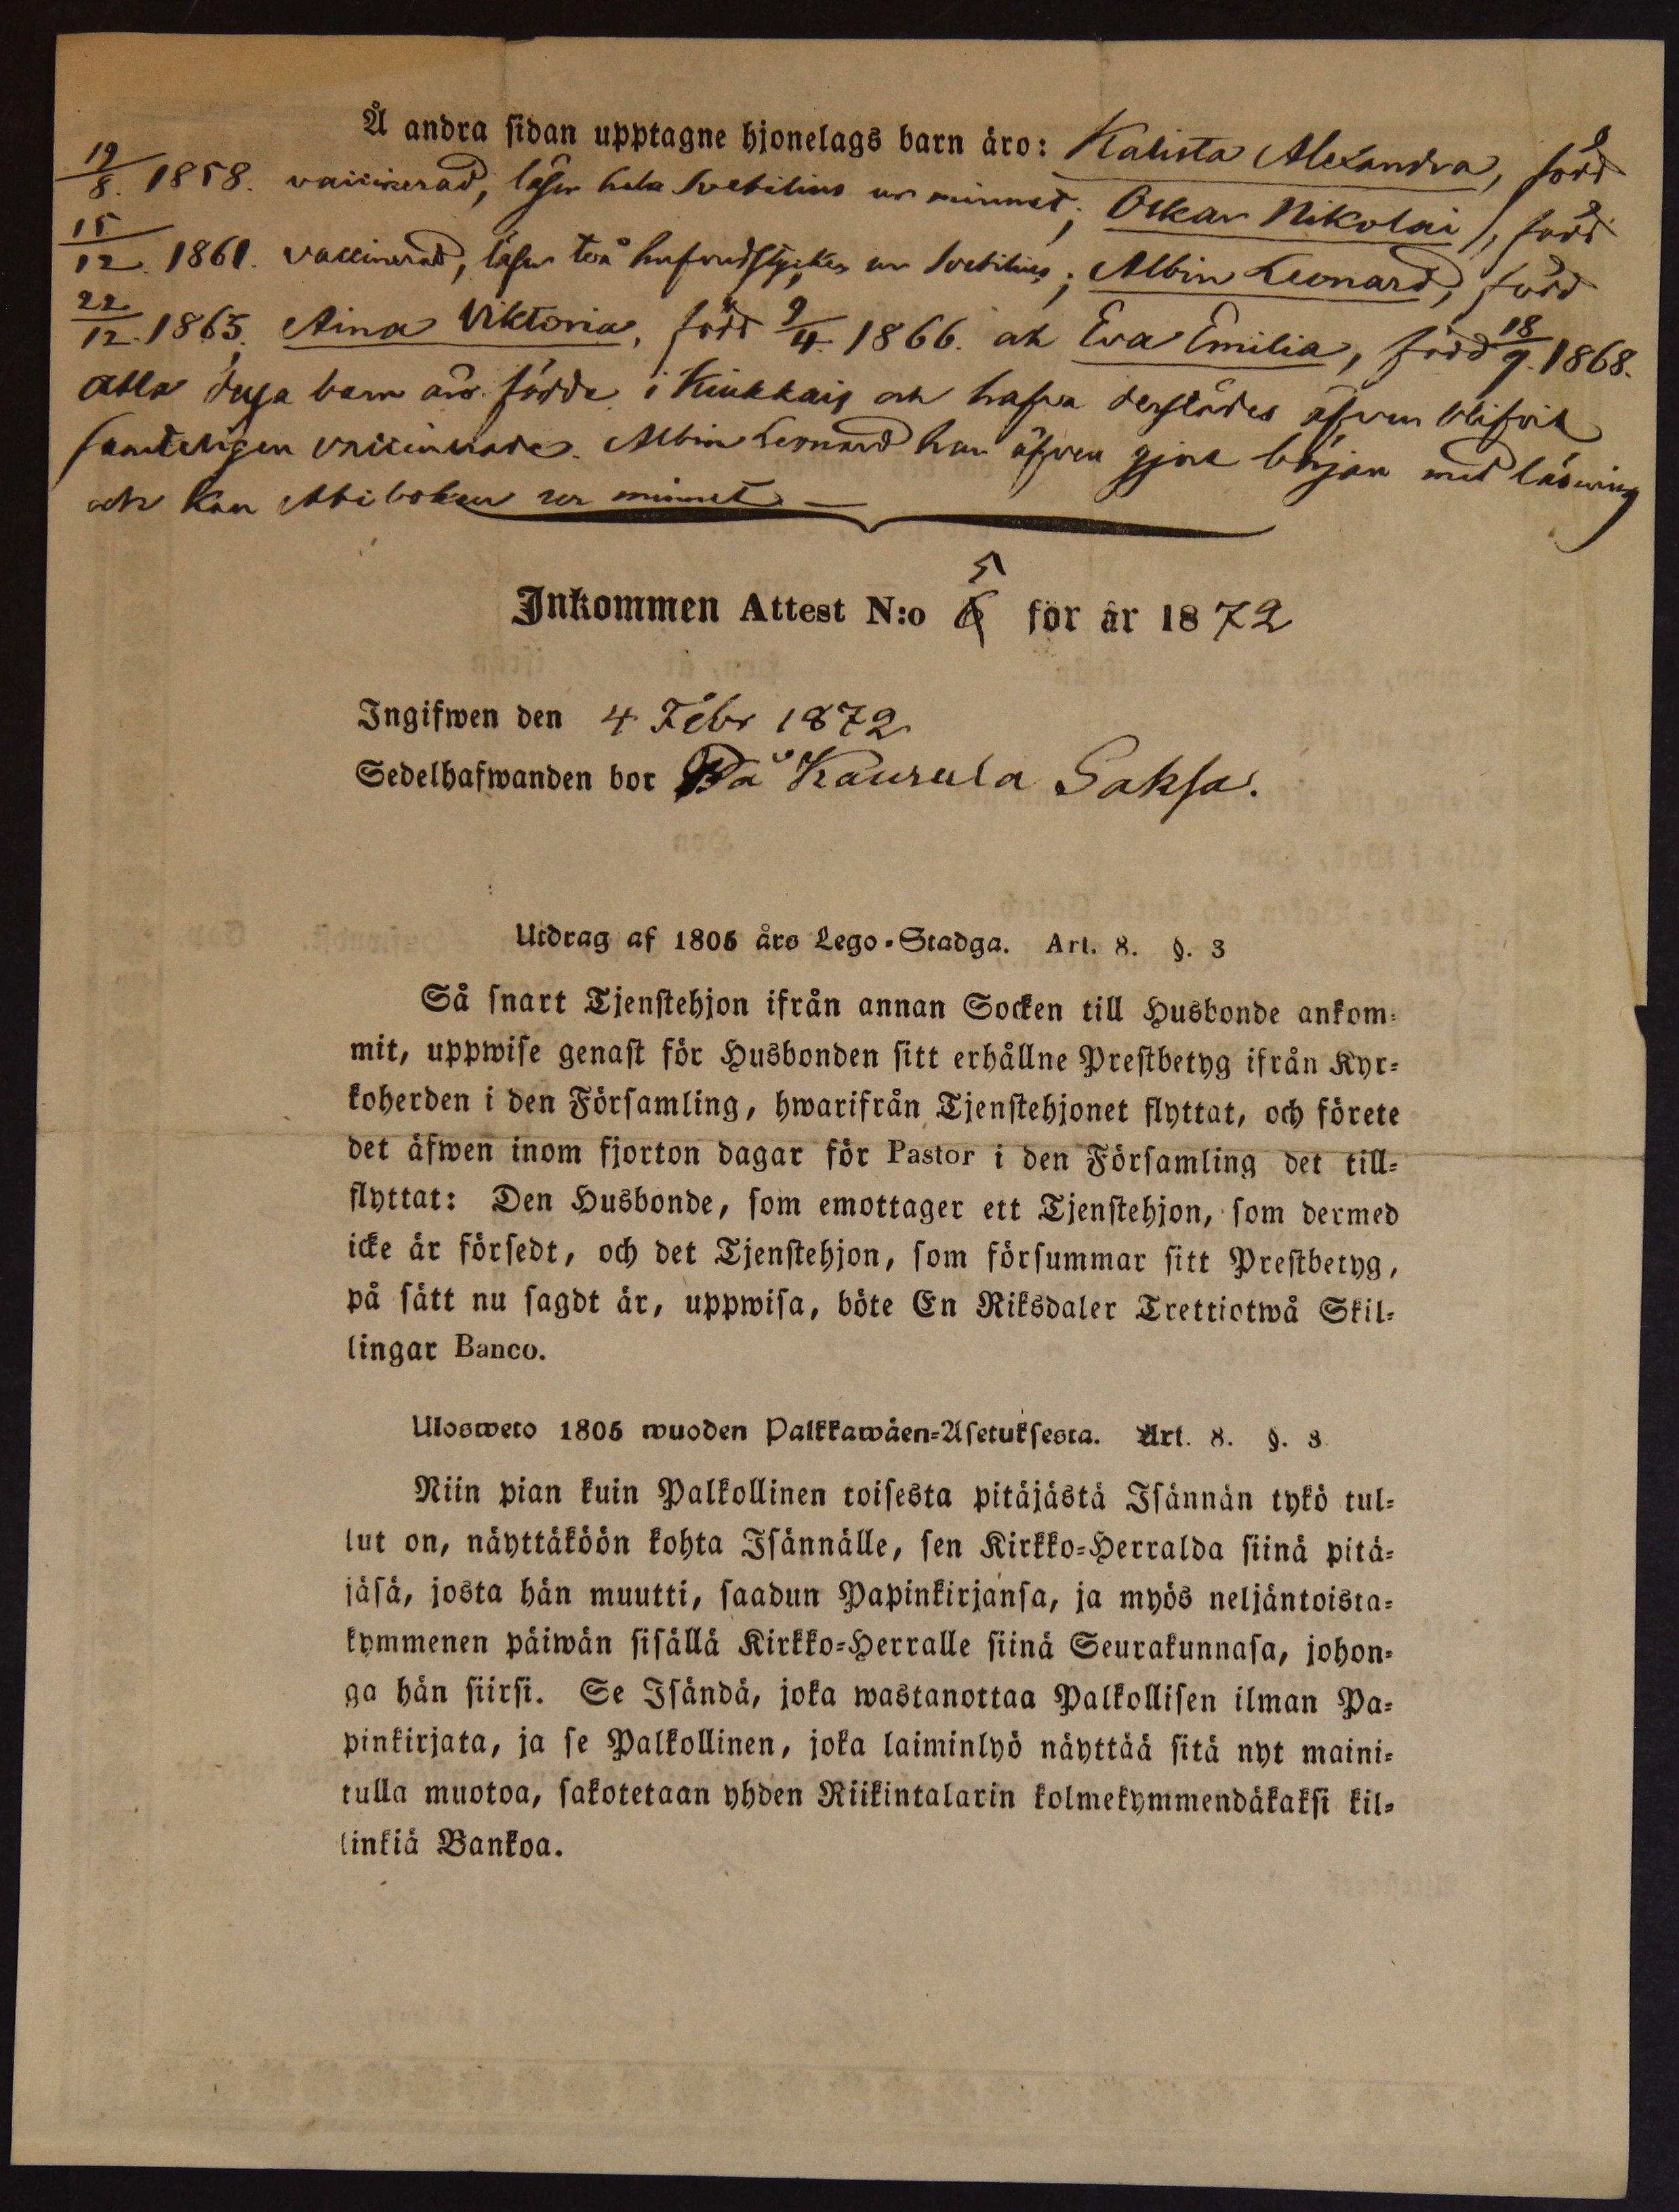 Å andra sidan upptagne hjonelags barn äro: Kalista Alexandra, född
19/8. 1858. vaccinerad, läser hela Svebilius ur minnet; Oskar Nikolai, född
15/12. 1861. vaccinerad, läser två hufvudstycken ur Svebilius; Albin Leonard, född
22/12. 1863, Aina Viktoria, född 9/4. 1866. och Eva Emilia, född 18/9. 1868.
Alla dessa barn äro födde i Kiukkais och hafva derstädes äfven blifvit
samteligen vaccinerade. Albin Leonard har äfven gjort början med läsning
och kan Abiboken ur minnet —
Inkommen Attest N:o 5 för år 1872
Ingifwen den 4 Febr 1872
Sedelhafwanden bor På Kausula Saksa.
Utdrag af 1805 års Lego-Stadga. Art. 8. §. 3
Så snart Tjenstehjon ifrån annan Socken till Husbonde ankom-
mit, uppwise genast för Husbonden sitt erhållne Prestbetyg ifrån Kyr-
koherden i den Församling, hwarifrån Tjenstehjonet flyttat, och förete
det äfwen inom fjorton dagar för Pastor i den Församling det till-
flyttat: Den Husbonde, som emottager ett Tjenstehjon, som dermed
icke är försedt, och det Tjenstehjon, som försummar sitt Prestbetyg,
på sätt nu sagdt är, uppwisa, böte En Riksdaler Trettiotwå Skil-
lingar Banco.
Ulosweto 1805 wuoden Palkkawäen-Asetuksesta. Art. 8. §. 3
Niin pian kuin Palkollinen toisesta pitäjästä Isännän tykö tul-
lut on, näyttäköön kohta Isännälle, sen Kirkko-Herralda siinä pitä-
jäsä, josta hän muutti, saadun Papinkirjansa, ja myös neljäntoista-
kymmenen päiwän sisällä Kirkko-Herralle siinä Seurakunnasa, johon-
ga hän siirsi. Se Isändä, joka wastanottaa Palkollisen ilman Pa-
pinkirjata, ja se Palkollinen, joka laiminlyö näyttää sitä nyt maini-
tulla muotoa, sakotetaan yhden Riikintalarin kolmekymmendäkaksi kil-
linkiä Bankoa.